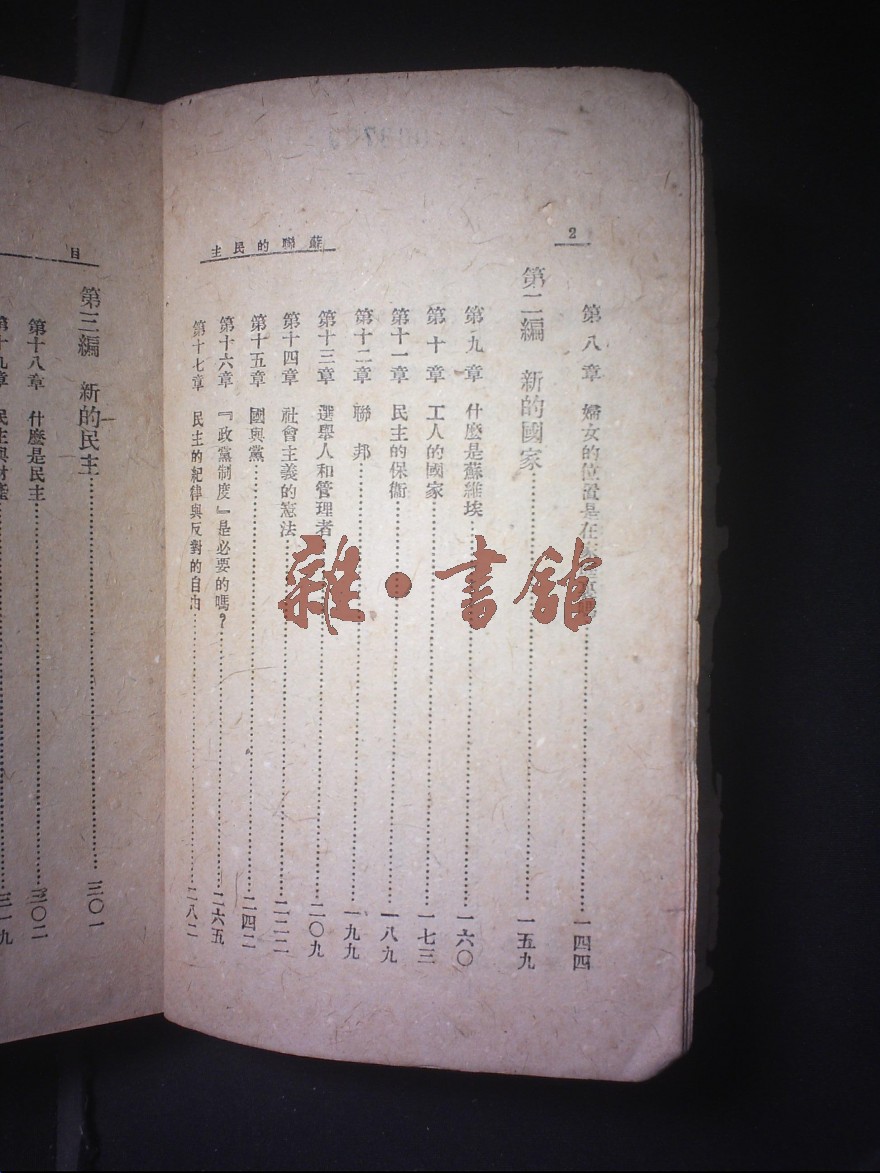 2
蘇聯的民主
第八章 婦女的位置是在
一四四
第二編 新的國家
一五九
第九章 什麼是蘇維埃
一六〇
第十章 工人的國家
一七三
第十一章 民主的保衞
一八九
第十二章 聯邦
一九九
第十三章 選舉人和管理者
二〇九
第十四章 社會主義的憲法
二二二
第十五章 國與黨
二四二
第十六章 『政黨制度』是必要的嗎?
二六五
第十七章 民主的紀律與反對的自由
二八二
目
第三編 新的民主
三〇一
第十八章 什麼是民主
三〇二
第十九章 民主與財產
三一九
雜·書館